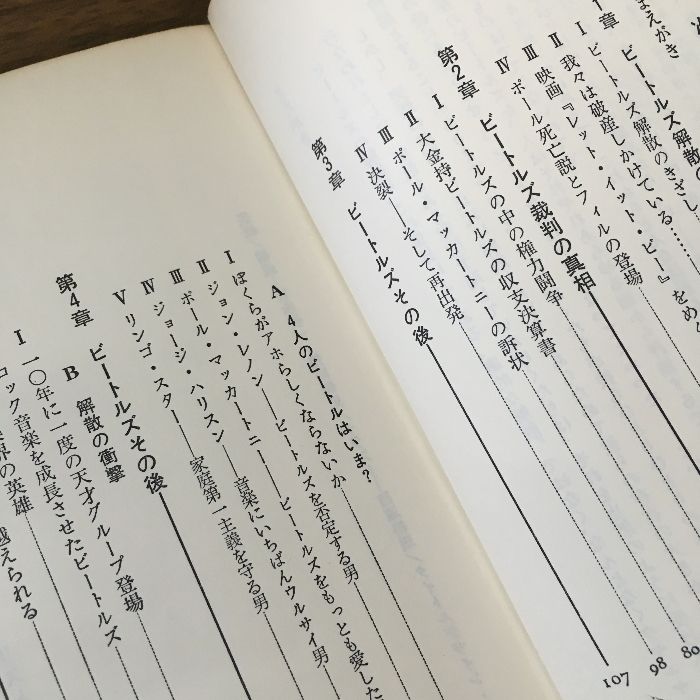 まえがき
1章 ビートルズ解散の
I ビートルズ解散のきざし
II 我々は破産しかけている……
III 映画『レット・イット・ビー』をめぐ
IV ポール死亡説とフィルの登場
第2章 ビートルズ裁判の真相
I ビートルズの中の権力闘争
II 大金持ビートルズの収支決算書
III ポール・マッカートニーの訴状
IV 決裂——そして再出発
80
98
第3章 ビートルズその後
107
A 4人のビートルはいま?
I ぼくらがアホらしくならないか
II ジョン・レノン——ビートルズを否定する男
III ポール・マッカートニー——ビートルズをもっとも愛した
IV ジョージ・ハリスン——音楽にいちばんウルサイ男
V リンゴ・スター——家庭第一主義を守る男
第4章 ビートルズその後
B 解散の衝撃
I 一〇年に一度の天才グループ登場
ロック音楽を成長させたビートルズ
界の英雄
越えられる